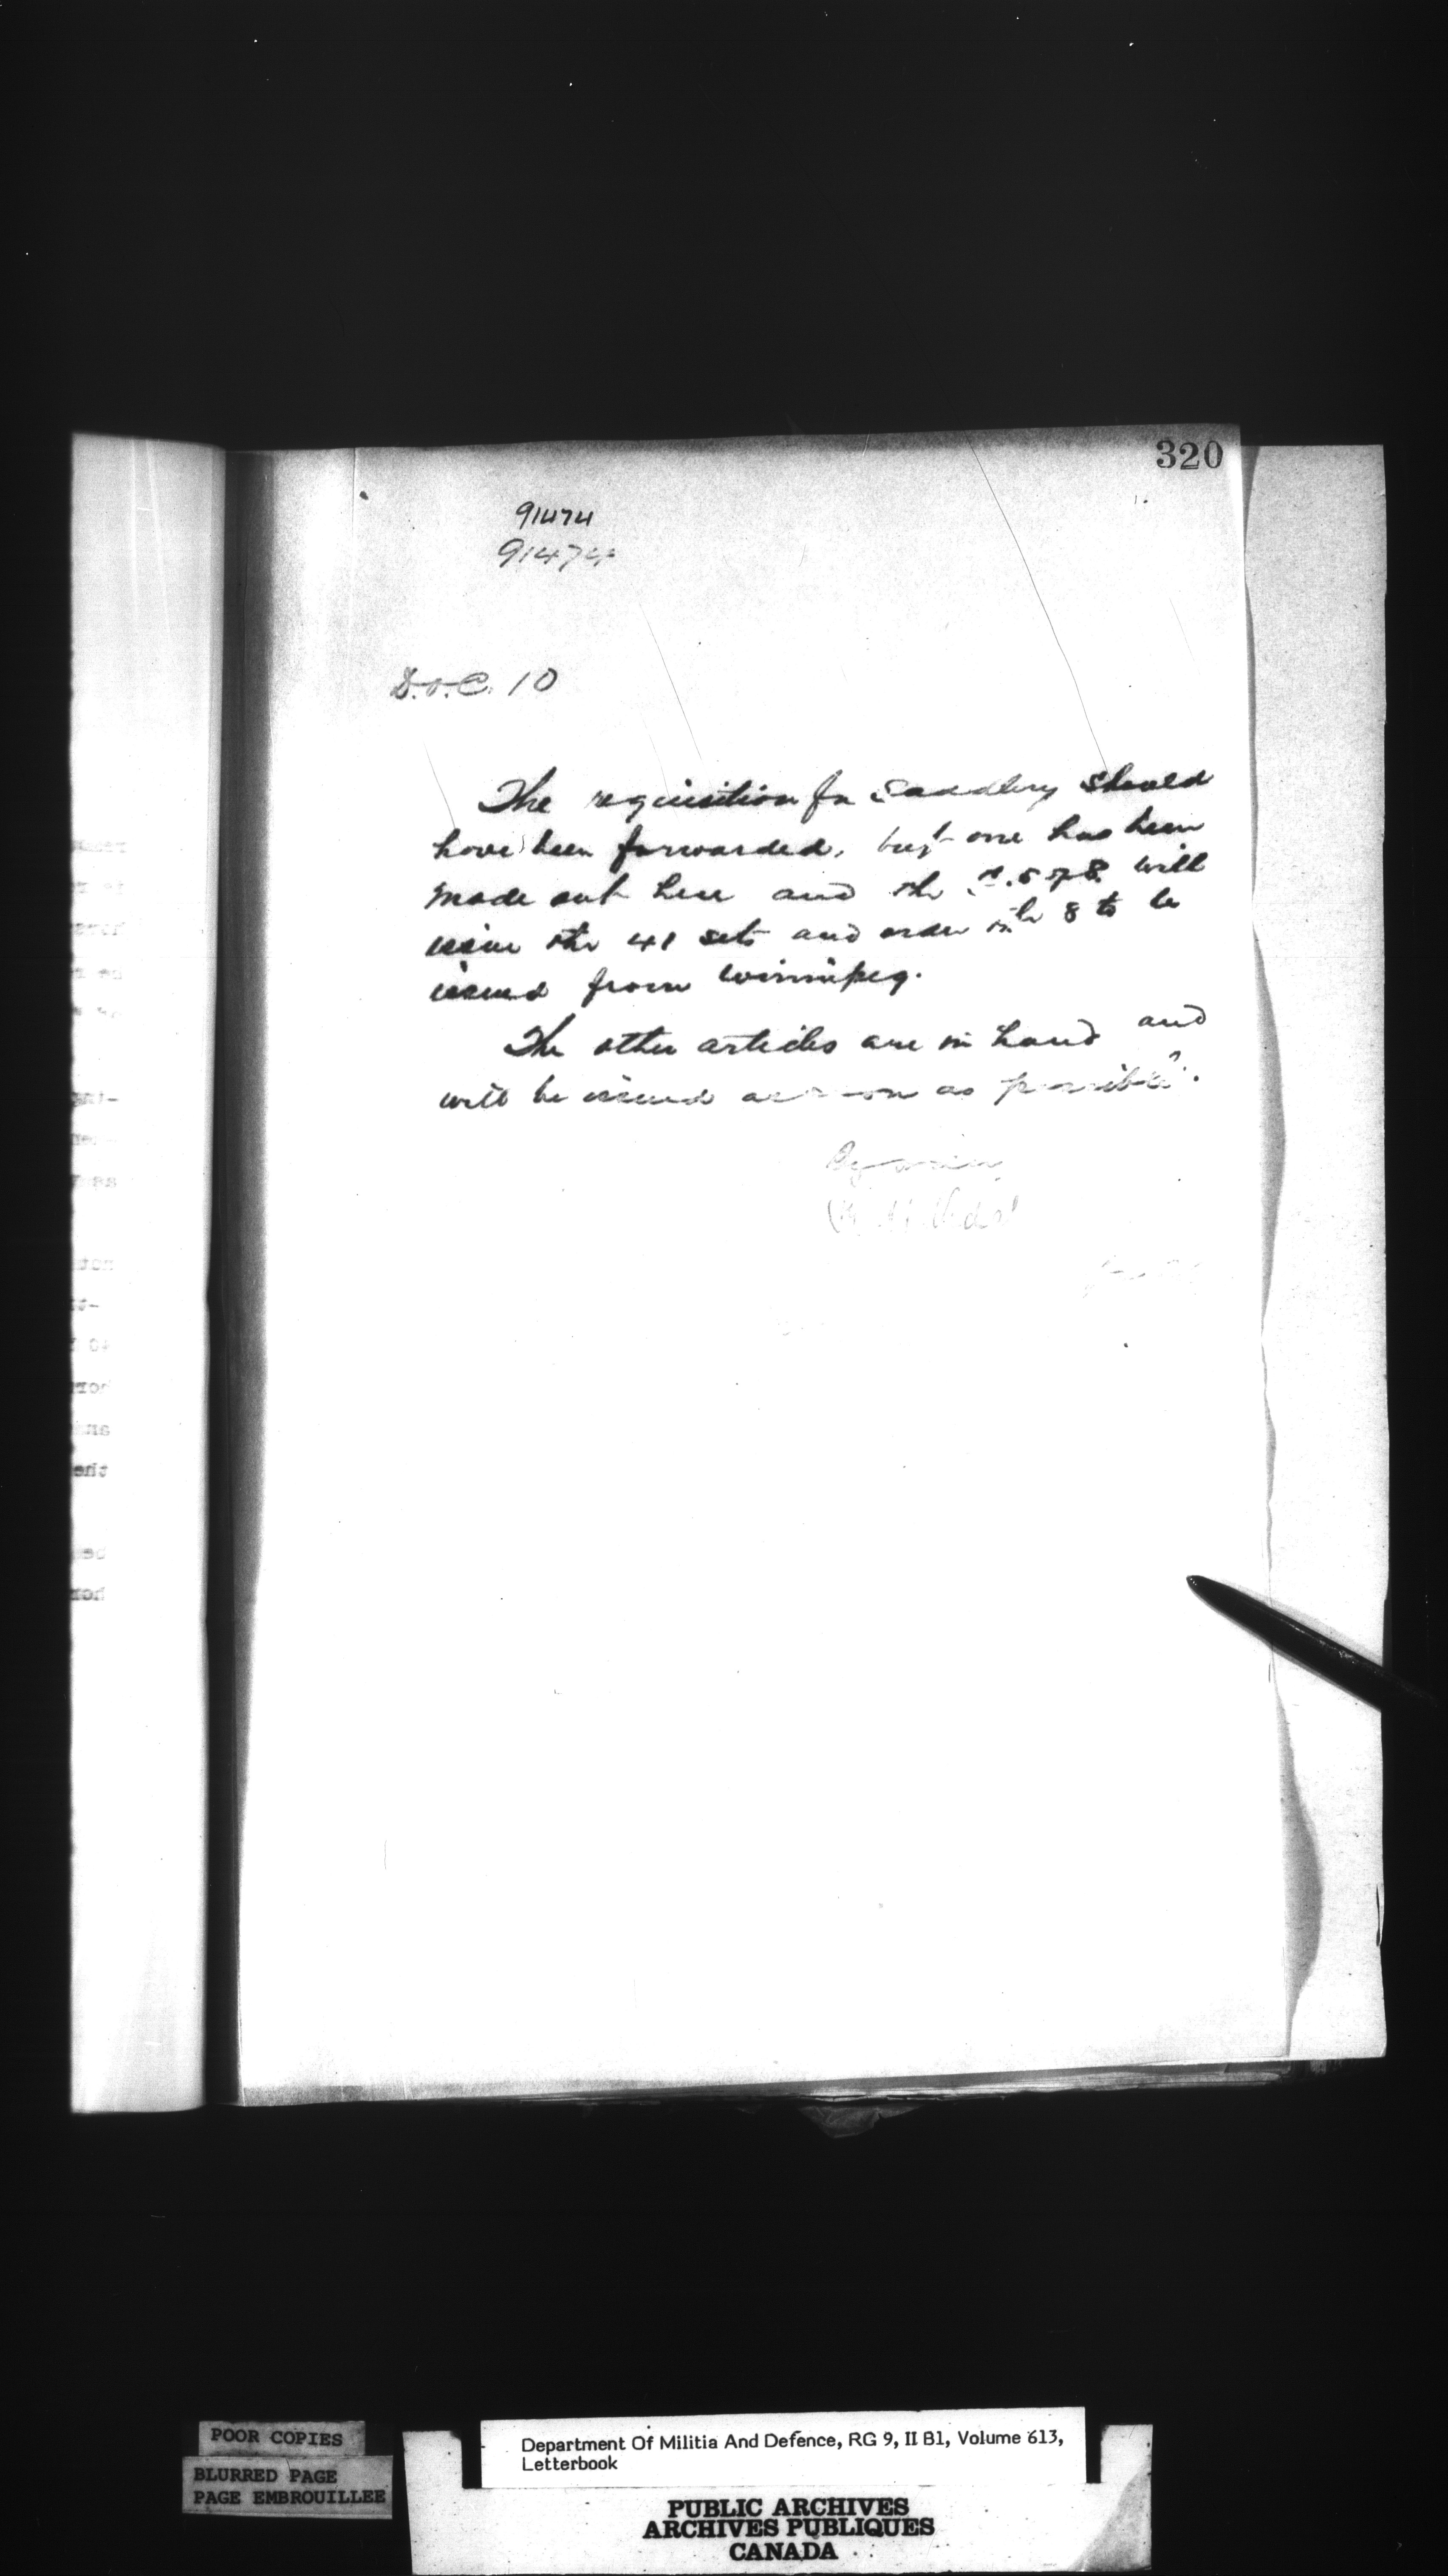 320
91474
91474
D.O.C. 10
The requisition for Saddlery should
have been forwarded, but one has been
made out here and the D. of S. will
issue the 41 sets and order the 8 to be
issued from Winnipeg.
The other articles are in hand and
will be issued as soon as possible.
By order
POOR COPIES
BLURRED PAGE
PAGE EMBROUILLEE
Department Of Militia And Defence, RG 9, II B1, Volume 613,
Letterbook
PUBLIC ARCHIVES
ARCHIVES PUBLIQUES
CANADA